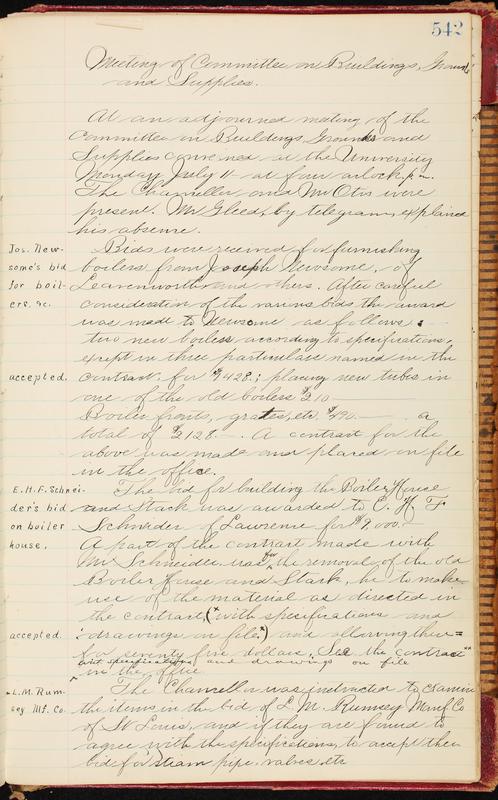 542
Meeting of Committee on Buildings, Grounds
and Supplies.
At an adjourned meeting of the
Committee on Buildings Grounds and
Supplies convened at the University
Monday July 11 at four o'clock p.m.
The Chancellor and Mr Otis were
present. Mr Gleed, by telegram, explained
his absence.
Jos. New- Bids were received for furnishing
some's bid boilers from Joseph Newsome, of
for boil- Leavenworth and others. After careful
ers, &c. consideration of the various bids the award
was made to Newsome as follows:
two new boilers according to specifications,
except in three particulars named in the
accepted. contract, for $1428.; placing new tubes in
one of the old boilers $210
Boiler fronts, grates, etc. $490.— a
total of $2128.—. A contract for the
above was made and placed on file
in the office.
E.H.F. Schnei- The bid for building the Boiler House
der's bid and Stack was awarded to E. H. F
on boiler Schneider of Lawrence for $9,000.
house. A part of the contract made with
Mr Schneider was for the removal of the old
Boiler House and Stack, he to make
use of the material as directed in
the contract, (with specifications and
accepted drawings on file,) and allowing
for seventy five dollars. See the contract
and specifications and drawings on file
in the office
L.M. Rum- The Chancellor was instructed to examine
sey Mf. Co. the items in the bid of L. M. Rumsey Manf Co
of St Louis, and if they are found to
agree with the specifications, to accept their
bid for steam pipe, valves, etc